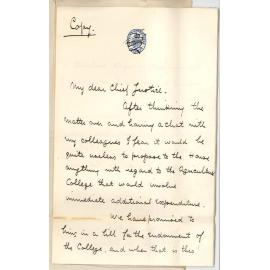 Copy.
My dear Chief Justice.
After thinking the
matter over and having a chat with
my colleagues I fear it would be
quite useless to propose to the House
anything with regard to the Agriculture
College that would involve
immediate additional expenditure.
We have promised to
bring in a bill for the endowment of
the College, and when that is